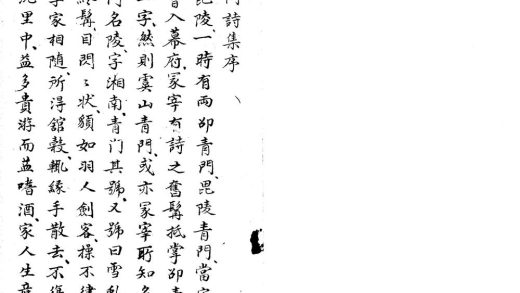 詩集序
毘陵、一時有兩邵青門、毘陵青門、當
入幕府、冢宰有詩之奮髯抵掌邵青
字、然則虞山青門、或亦冢宰所知名
名陵、字湘南、青门其號、又號曰雪虬
髯、目閃〻狀、頟如羽人劍客、標不律
家相隨、所淂館穀、輒緣手散去、不復
里中、益多貴游而益嗜酒、家人生産